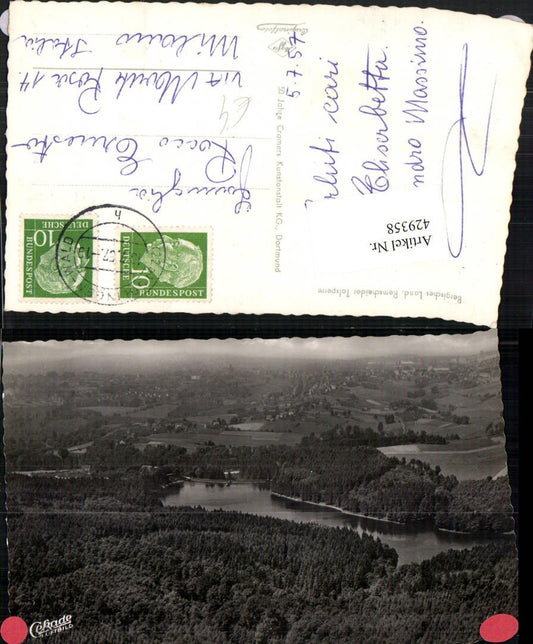 Famiglia
Rocco Ernesto
via Monte Rosa 14
Milano Italia
5.7.57
cari
Elisabetta
Massimo.
Artikel Nr.
429358
50 Jahre Cramers Kunstanstalt KG., Dortmund
Bergisches Land. Remscheider Talsperre
10
DEUTSCHE
BUNDESPOST
10
DEUTSCHE
BUNDESPOST
Cekade
LUFTBILD